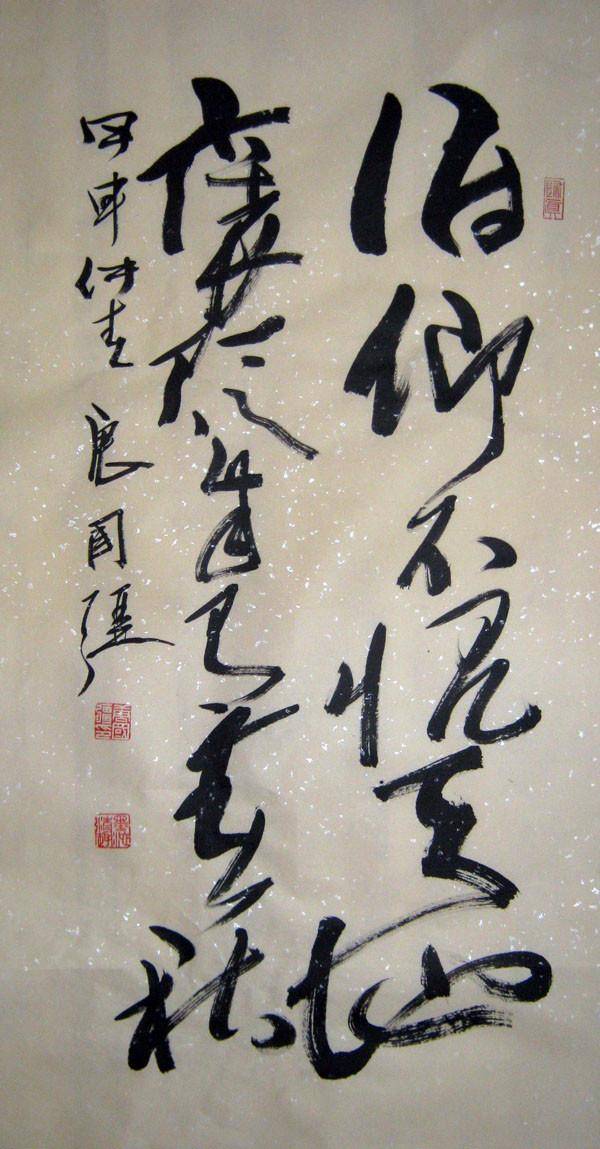 俯仰不愧天地
褒贬自有春秋
甲申仲春 唐国强